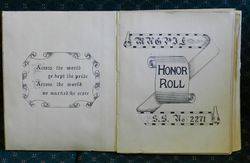 Across the world
we kept the prize
Across the world
we marked the score
HONOR
ROLL
S.S. No 2271